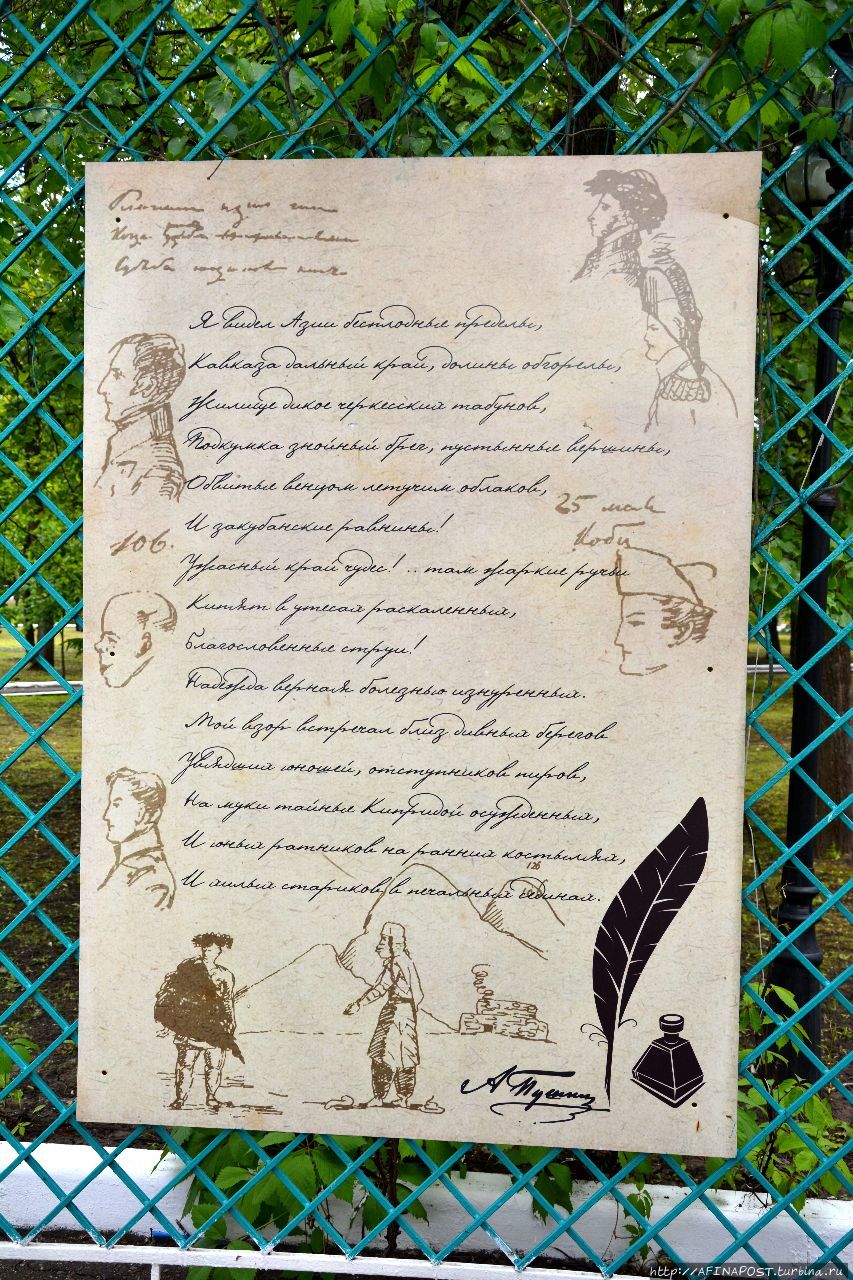 Я видел Азии бесплодные пределы,
Кавказа дальный край, долины обгорелы,
Жилище дикое черкесских табунов,
Подкумка знойный брег, пустынные вершины,
Обвитые венцом летучим облаков,
25 мая
И закубанские равнины!
Коби
106.
Ужасный край чудес! .. там жаркие ручьи
Кипят в утесах раскаленных,
Благословенные струи!
Надежда верная болезнью изнуренных.
Мой взор встречал близ дивных берегов
Увядших юношей, отступников пиров,
На муки тайные Кипридой осужденных,
И юных ратников на ранних костылях,
126
И хилых стариков в печальных сединах.
А Пушкин
http://AFINAPOST.turbina.ru